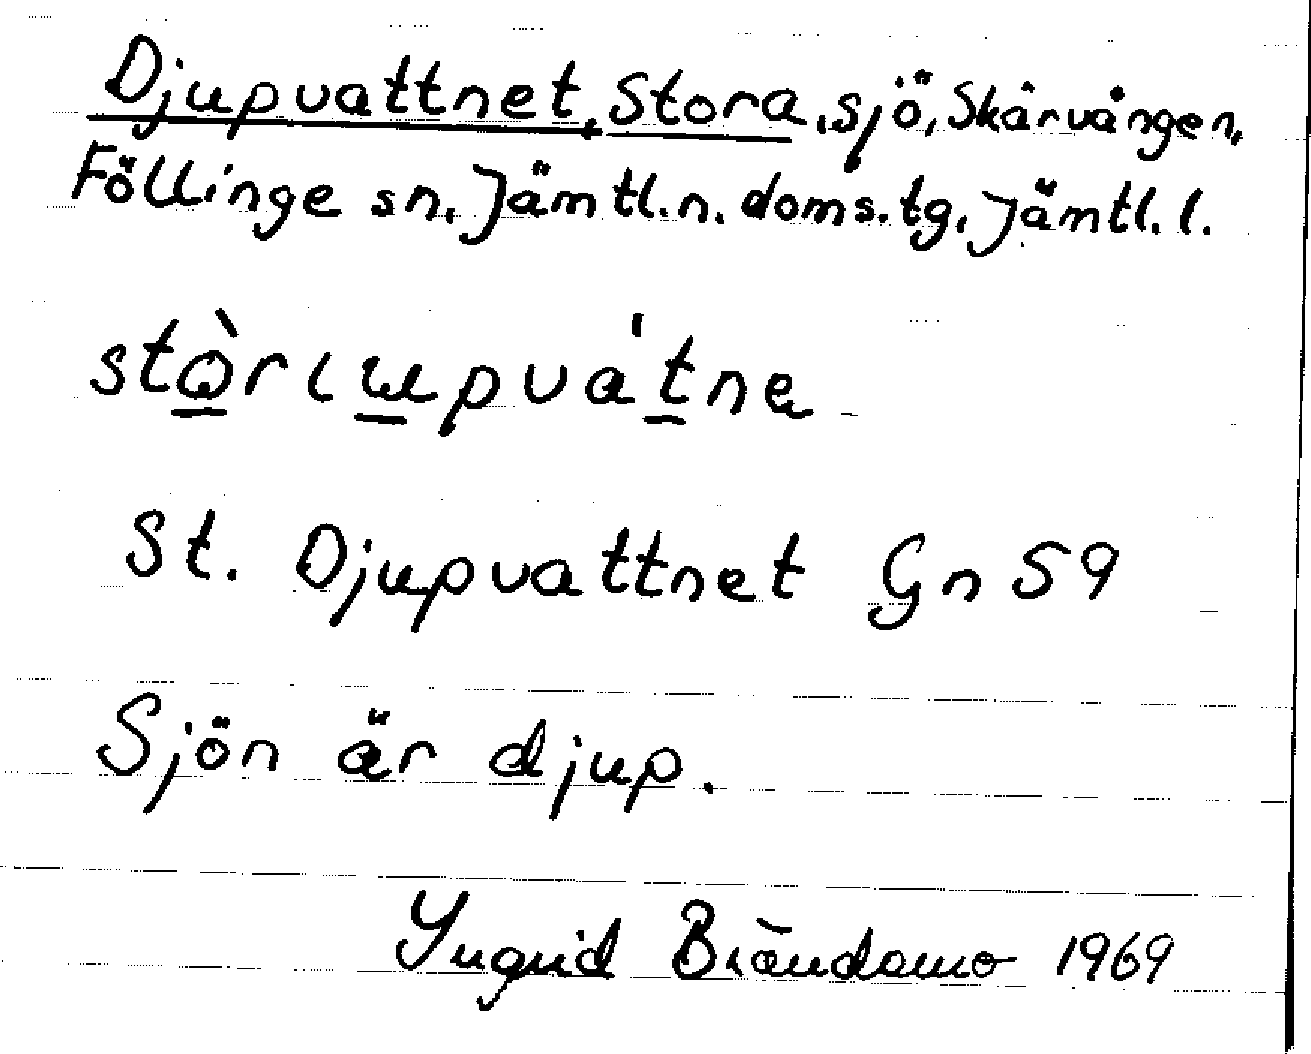 Djupvattnet, Stora, sjö, Skärvången,
Föllinge sn, Jämtl. n. doms. tg, Jämtl. l.
St. Djupvattnet Gn 59
Sjön är djup.
Yngrid 1969